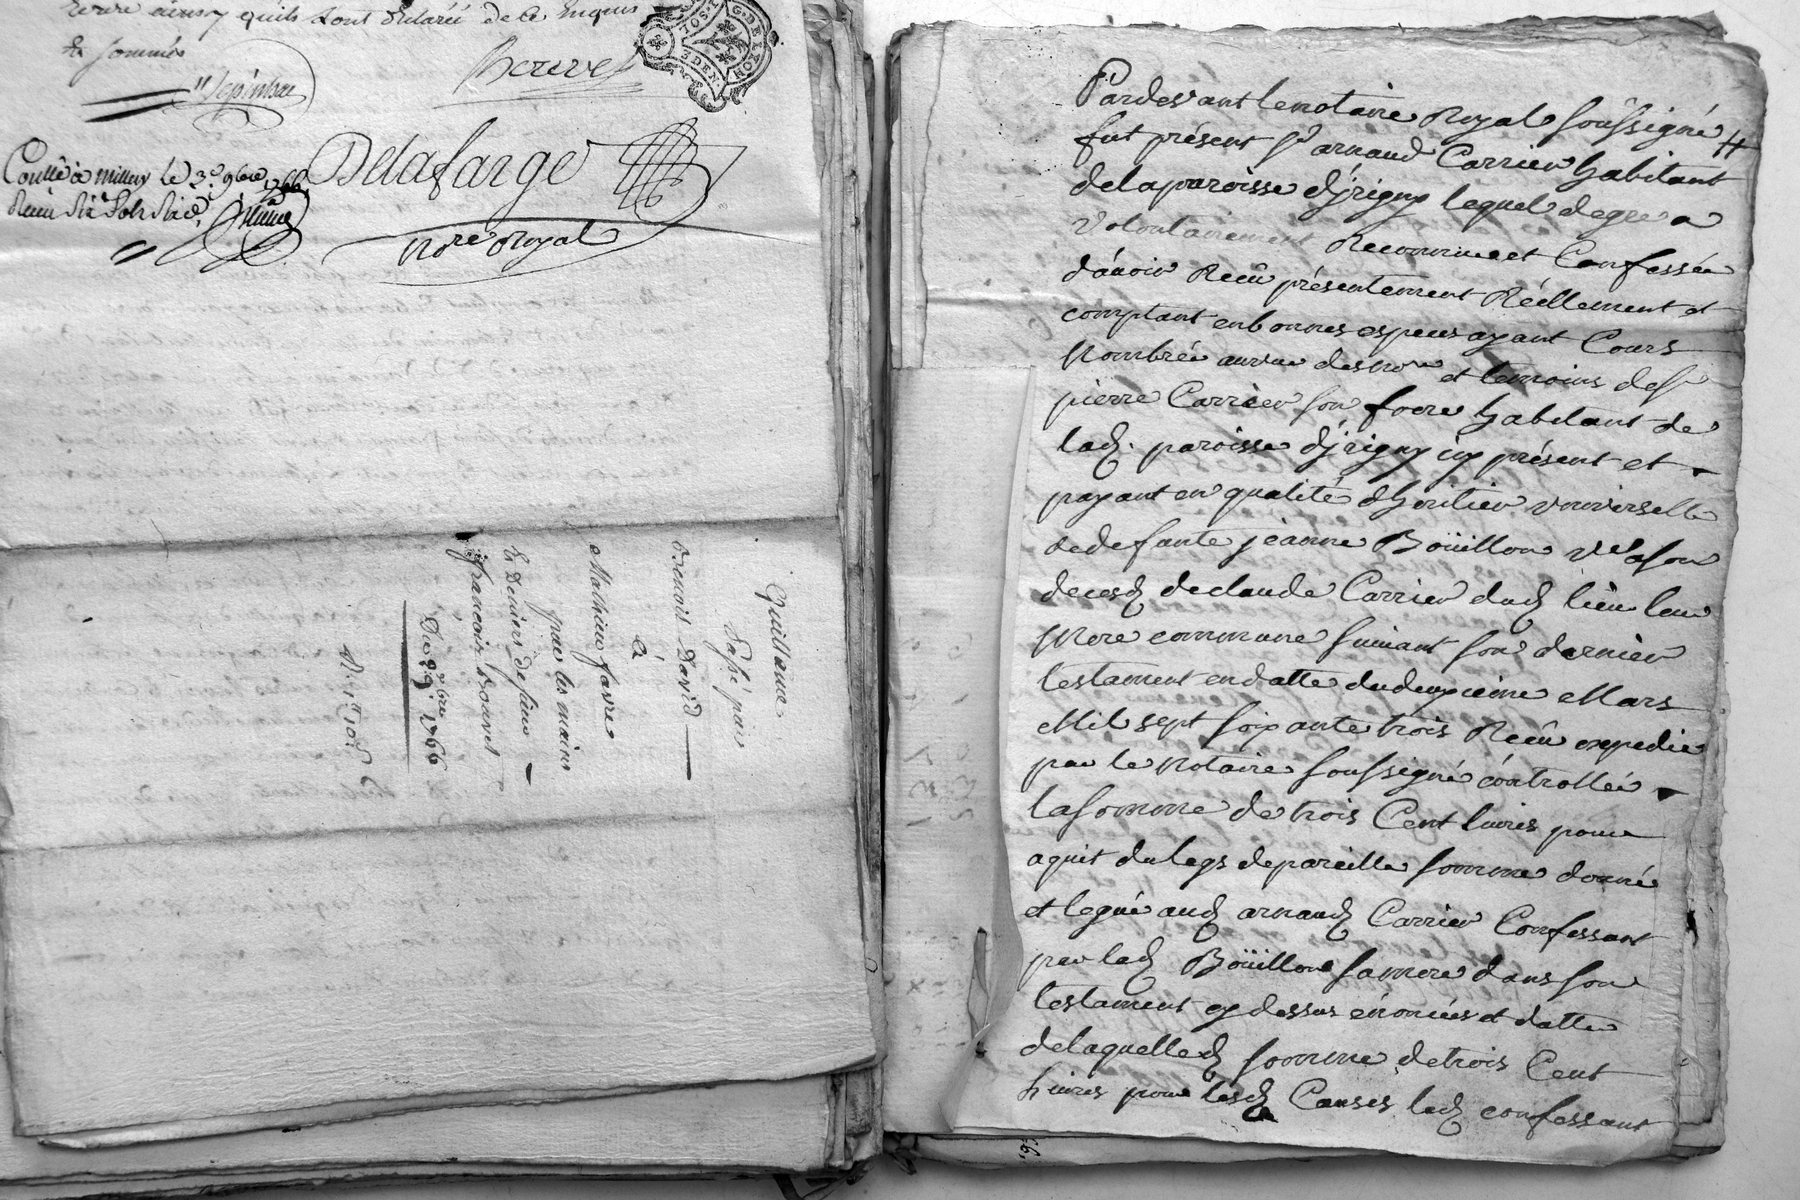 et sommés
Delafarge
No.re Royal
Controllé à millery le 3.e 9bre 1766
Reçu six sols six d.
Quittance
passé par
David
à
Mathieu favre
par les mains
et Deniers de sieur
françois
Du 2 9bre 1766
Pardevant le notaire Royal soussigné
fut présent s.r arnaud Carrier habitant
de la paroisse d'jrigny lequel de gré a
volontairement Reconnu et Confessé
d'avoir Reçû présentement Réellement et
comptant en bonnes especes ayant Cours
Nombrée au vue des no.re et temoins de s.r
pierre Carrier son frere habitant de
lad. paroisse d'jrigny icy présent et
payant en qualité d'heritier vniverselle
de defunte jeanne Boüillon v.e a son
deced de claude Carrier dud lieu leur
Mere commune suivant son dernier
testament en datte du deuxieme Mars
Mil sept soixante trois Reçû expedié
par le Notaire soussigné controllé
la somme de trois Cent livres pour
aquit du legs de pareille somme donné
et legué aud arnaud Carrier Confessant
par lad Boüillon sa mere dans son
testament cy dessus énoncés et datté
de laquelle d somme de trois Cent
livres pour lesd Causes led confessant